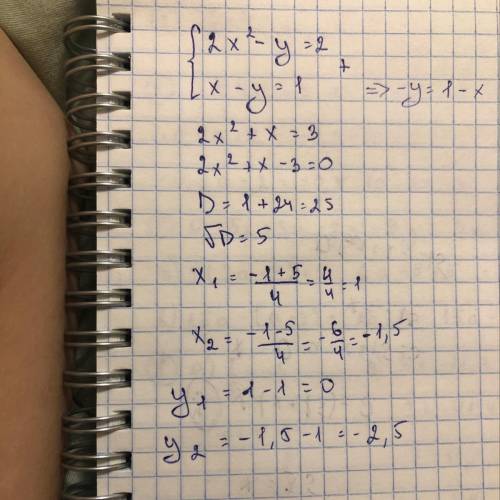 {2x² - y = 2
x - y = 1 + => -y = 1 - x
2x² + x = 3
2x² + x - 3 = 0
D = 1 + 24 = 25
√D = 5
x₁ = (-1+5)/4 = 4/4 = 1
x₂ = (-1-5)/4 = -6/4 = -1,5
y₁ = 1 - 1 = 0
y₂ = -1,5 - 1 = -2,5